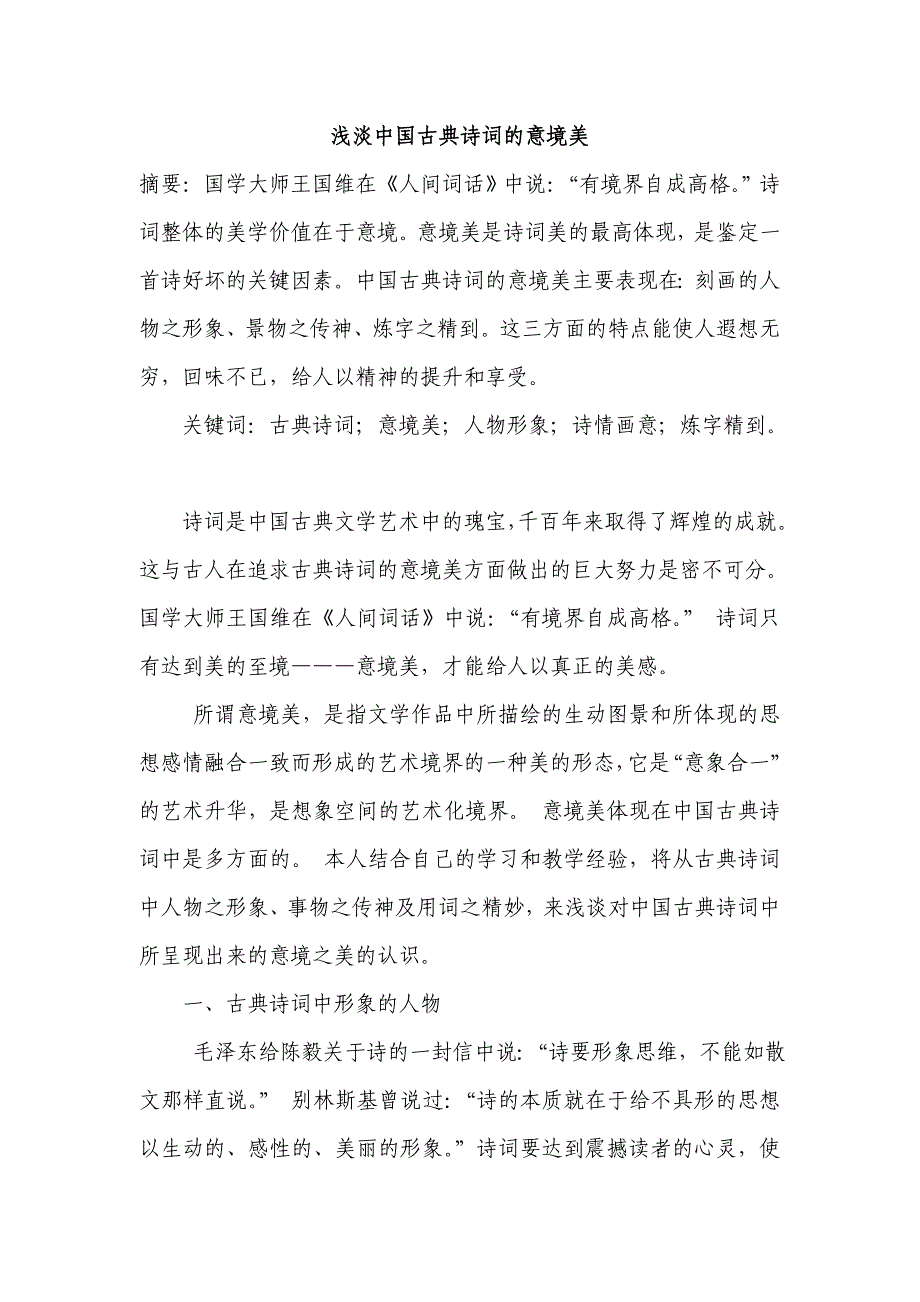 浅淡中国古典诗词的意境美
摘要：国学大师王国维在《人间词话》中说：“有境界自成高格。”诗
词整体的美学价值在于意境。意境美是诗词美的最高体现，是鉴定一
首诗好坏的关键因素。中国古典诗词的意境美主要表现在：刻画的人
物之形象、景物之传神、炼字之精到。这三方面的特点能使人遐想无
穷，回味不已，给人以精神的提升和享受。
关键词：古典诗词；意境美；人物形象；诗情画意；炼字精到。
诗词是中国古典文学艺术中的瑰宝，千百年来取得了辉煌的成就。
这与古人在追求古典诗词的意境美方面做出的巨大努力是密不可分。
国学大师王国维在《人间词话》中说：“有境界自成高格。” 诗词只
有达到美的至境———意境美，才能给人以真正的美感。
所谓意境美，是指文学作品中所描绘的生动图景和所体现的思
想感情融合一致而形成的艺术境界的一种美的形态，它是“意象合一”
的艺术升华，是想象空间的艺术化境界。 意境美体现在中国古典诗
词中是多方面的。 本人结合自己的学习和教学经验，将从古典诗词
中人物之形象、事物之传神及用词之精妙，来浅谈对中国古典诗词中
所呈现出来的意境之美的认识。
一、古典诗词中形象的人物
毛泽东给陈毅关于诗的一封信中说：“诗要形象思维，不能如散
文那样直说。” 别林斯基曾说过：“诗的本质就在于给不具形的思想
以生动的、感性的、美丽的形象。”诗词要达到震撼读者的心灵，使